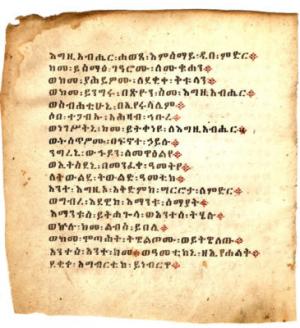 እግዚአብሔር፡ሐወጸ፡እምሰማይ፡ዲበ፡ምድር።
ከመ፡ይስማዕ፡ገዓሮሙ፡ለሙቁሓን።
ወከመ፡ያሕይዎሙ፡ለደቂቀ፡ቅቱላን።
ወከመ፡ይንግሩ፡በጽዮን፡ስመ፡እግዚአብሔር።
ወስብሐቲሁኒ፡በኢየሩሳሌም።
ሶበ፡ተጋብኡ፡አሕዛብ፡ኅቡረ።
ወነገሥትኒ፡ከመ፡ይትቀነዩ፡ለእግዚአብሔር።
ወተሰጥዎሙ፡በፍኖተ፡ኃይሉ።
ንግረኒ፡ውኁዶን፡ለመዋዕልየ።
ወኢትሰደኒ፡በመንፈቀ፡ዓመትየ።
ለትውልደ፡ትውልድ፡ዓመቲከ።
አንተ፡እግዚኦ፡አቅደምከ፡ሣርሮታ፡ለምድር።
ወግብረ፡እደዊከ፡እማንቱ፡ሰማያት።
እማንቱሰ፡ይትሐጐላ፡ወአንተሰ፡ትሄሉ።
ወኵሉ፡ከመ፡ልብስ፡ይበሊ።
ወከመ፡ሞጣሕት፡ትዌልጦሙ፡ወይትዌለጡ።
አንተሰ፡አንተ፡ክመ።ወዓመቲከኒ፡ዘኢየሐልቅ።
ደቂቀ፡አግብርቲከ፡ይነብርዋ።